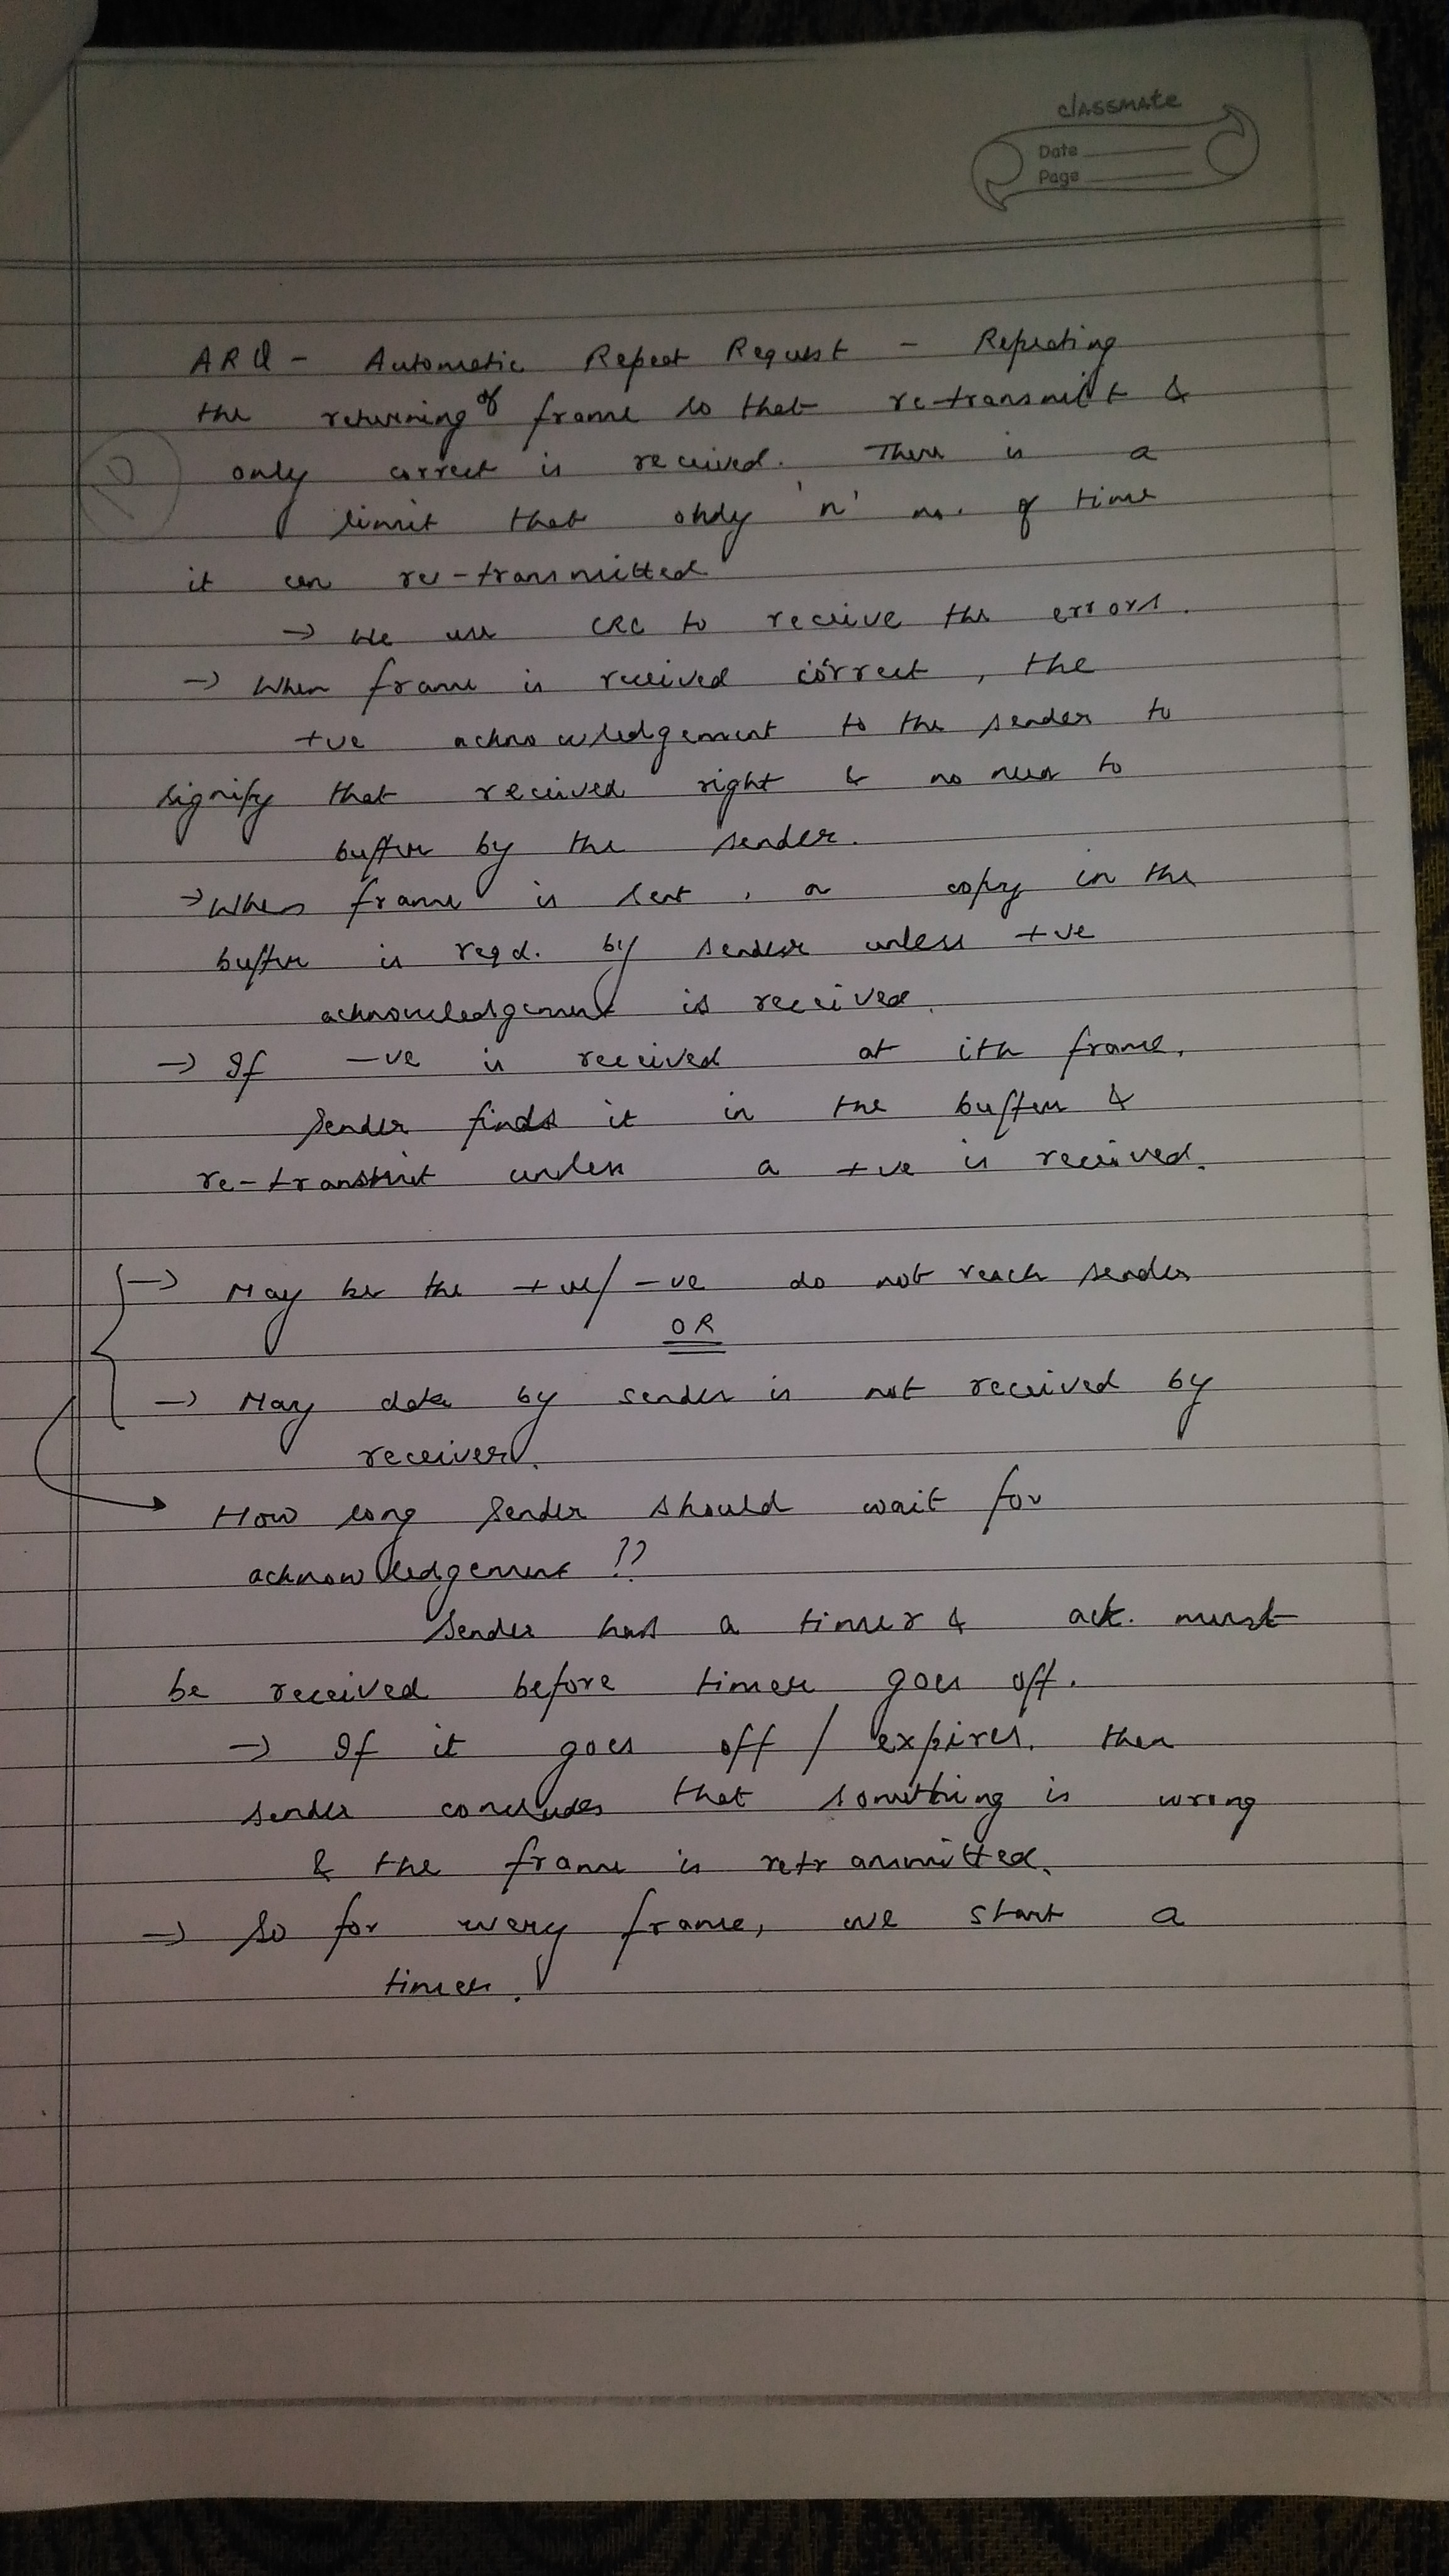 classmate
Date
Page
ARQ - Automatic Repeat Request - Repeating
the returning of frame so that re-transmit &
only correct is received. There is a
limit that only 'n' no. of time
it can re-transmitted
→ We use CRC to receive the errors.
→ When frame is received correct, the
+ve acknowledgement to the sender to
signify that received right & no need to
buffer by the sender.
→ When frame is sent, a copy in the
buffer is reqd. by sender unless +ve
acknowledgement is received.
→ If -ve is received at ith frame,
sender finds it in the buffer &
re-transmit unless a +ve is received.
→ May be the +ve/-ve do not reach sender
OR
→ May data by sender is not received by
receiver.
How long sender should wait for
acknowledgement ??
Sender has a timer & ack. must
be received before timer goes off.
→ If it goes off / expires. then
sender concludes that something is wrong
& the frame is retransmitted.
→ So for every frame, we start a
timer.